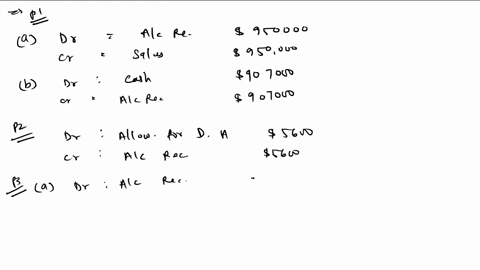 => P1
(a) Dr = A/c Re. $ 950000
Cr = Sales $ 950,000
(b) Dr : Cash $907000
Cr = A/c Rec $907000
P2 Dr : Allow. for D. A $5600
Cr : A/c Rec $5600
P3 (a) Dr : A/c Rec. -